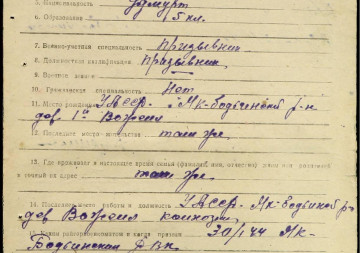 5. Национальность Удмурт
6. Образование 5 кл.
7. Военно-учетная специальность призывник
8. Должностная квалификация призывник
9. Воинское звание
10. Гражданская специальность Нет
11. Место рождения УАССР. Мк-Бодьинский р-н
дер 1ая Вожеия
12. Последнее место жительства там же.
13. Где проживает в настоящее время семья (фамилия, имя, отчество) жены или родителей
и точный их адрес там же.
14. Последнее место работы и должность УАССР, Мк-Бодьинский р-
дер Вожеия колхозник
15. Каким райвоенкоматом и когда призван 30/I 44 Мк-
Бодьинским РВК